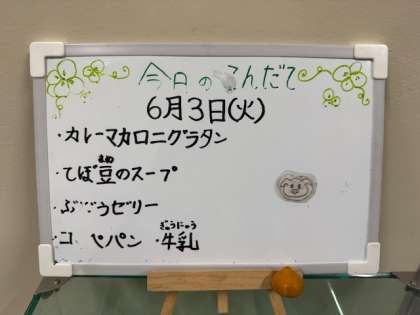 今日のこんだて
6月3日(火)
・カレーマカロニグラタン
・てぼ豆のスープ
まめ
・ぶどうゼリー
・コッペパン ・牛乳
ぎゅうにゅう